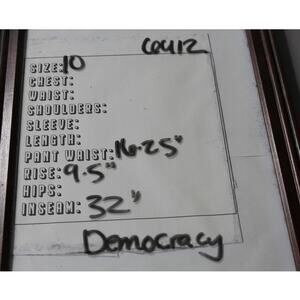 6412
SIZE: 10
CHEST:
WAIST:
SHOULDERS:
SLEEVE:
LENGTH:
PANT WAIST: 16.25"
RISE: 9.5"
HIPS:
INSEAM: 32"
Democracy